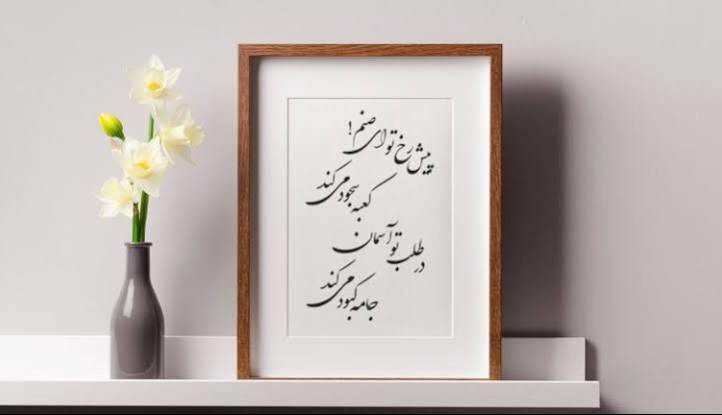 پیش رخ تو ای صنم!
کعبه سجود می کند
در طلب تو آسمان
جامه کبود می کند